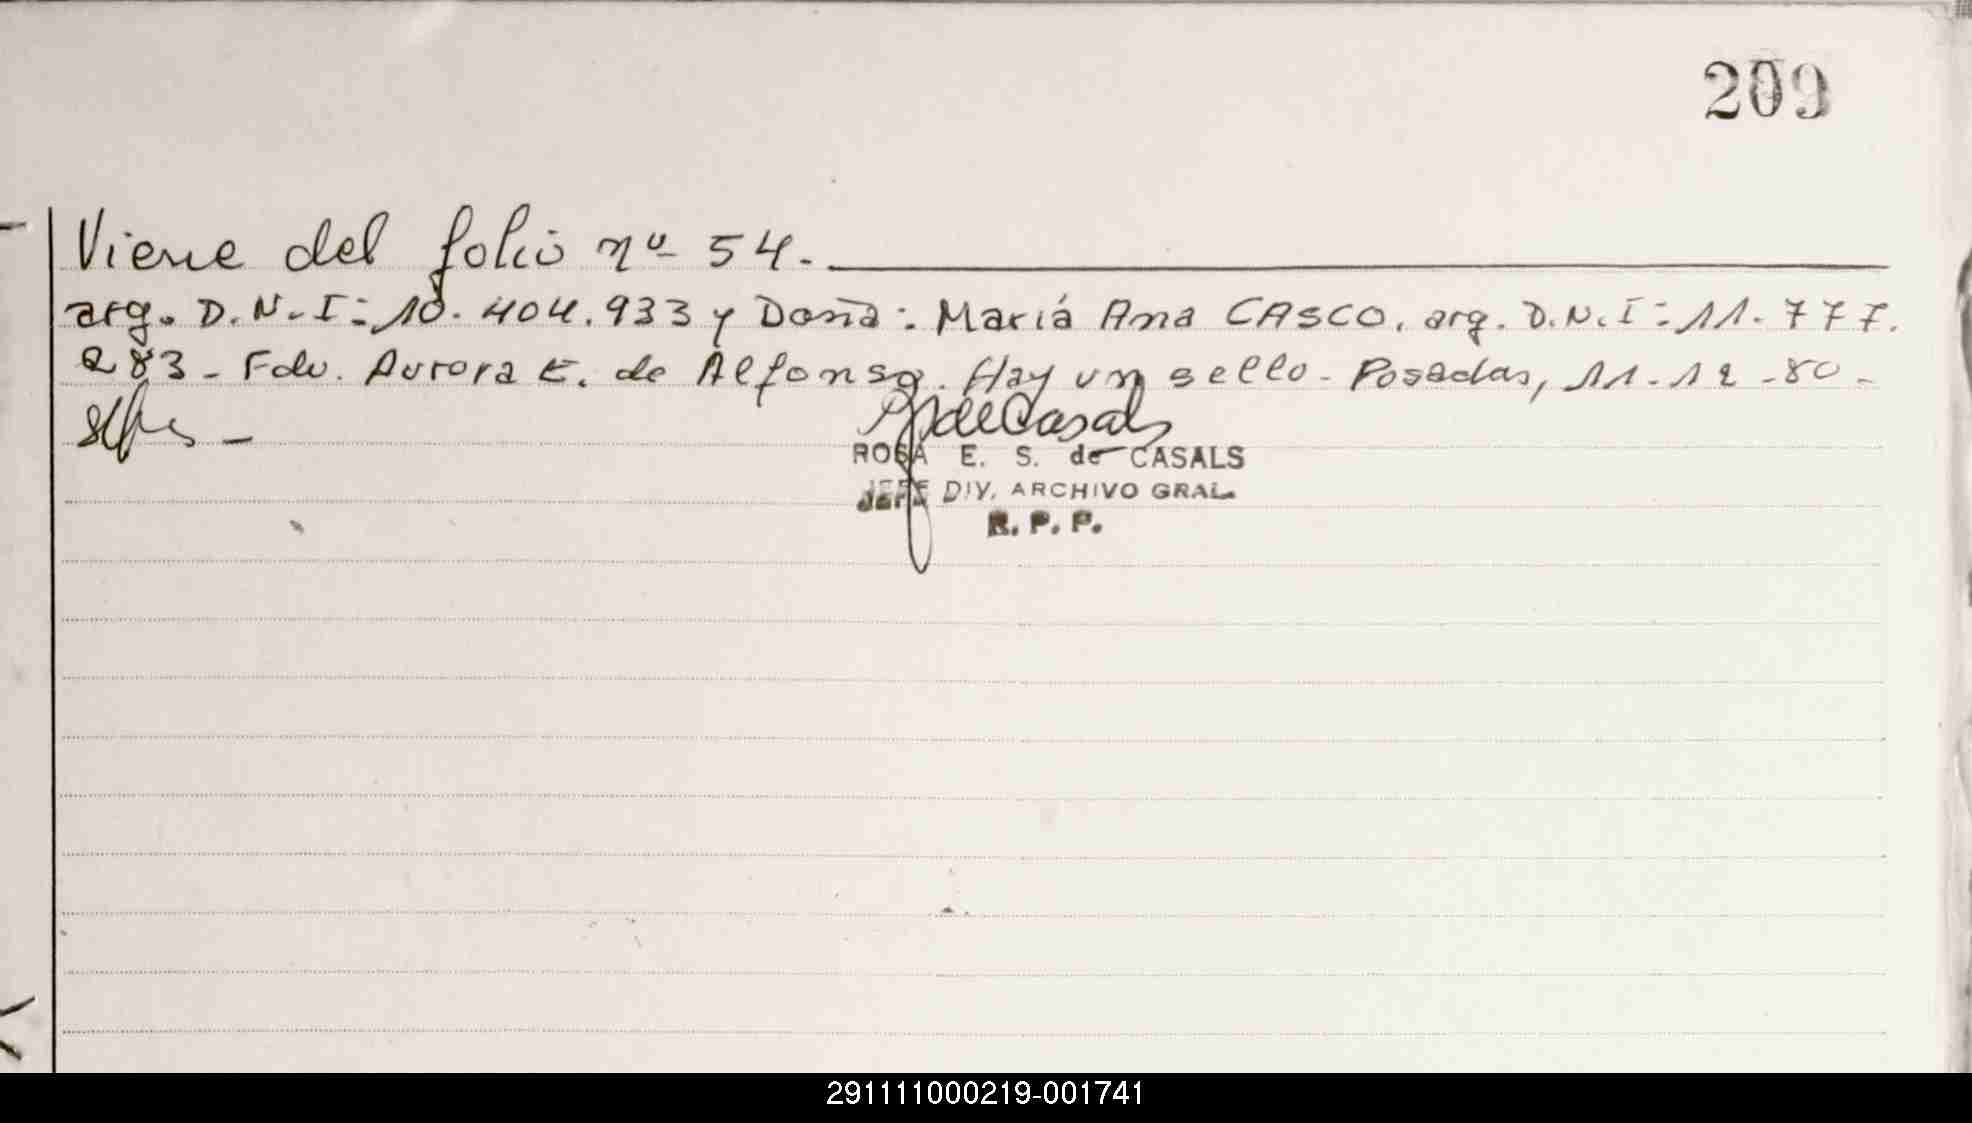 209
Viene del folio nº 54.-
arg. D.N.I: 10.404.933 y Doña: Mariá Ana CASCO, arg. D.N.I: 11.777.
283- Fdo. Aurora E. de Alfonso. Hay un sello- Posadas, 11-12-80-
deCasals
ROSA E. S. de CASALS
JEFE DIV. ARCHIVO GRAL.
R. P. P.
291111000219-001741